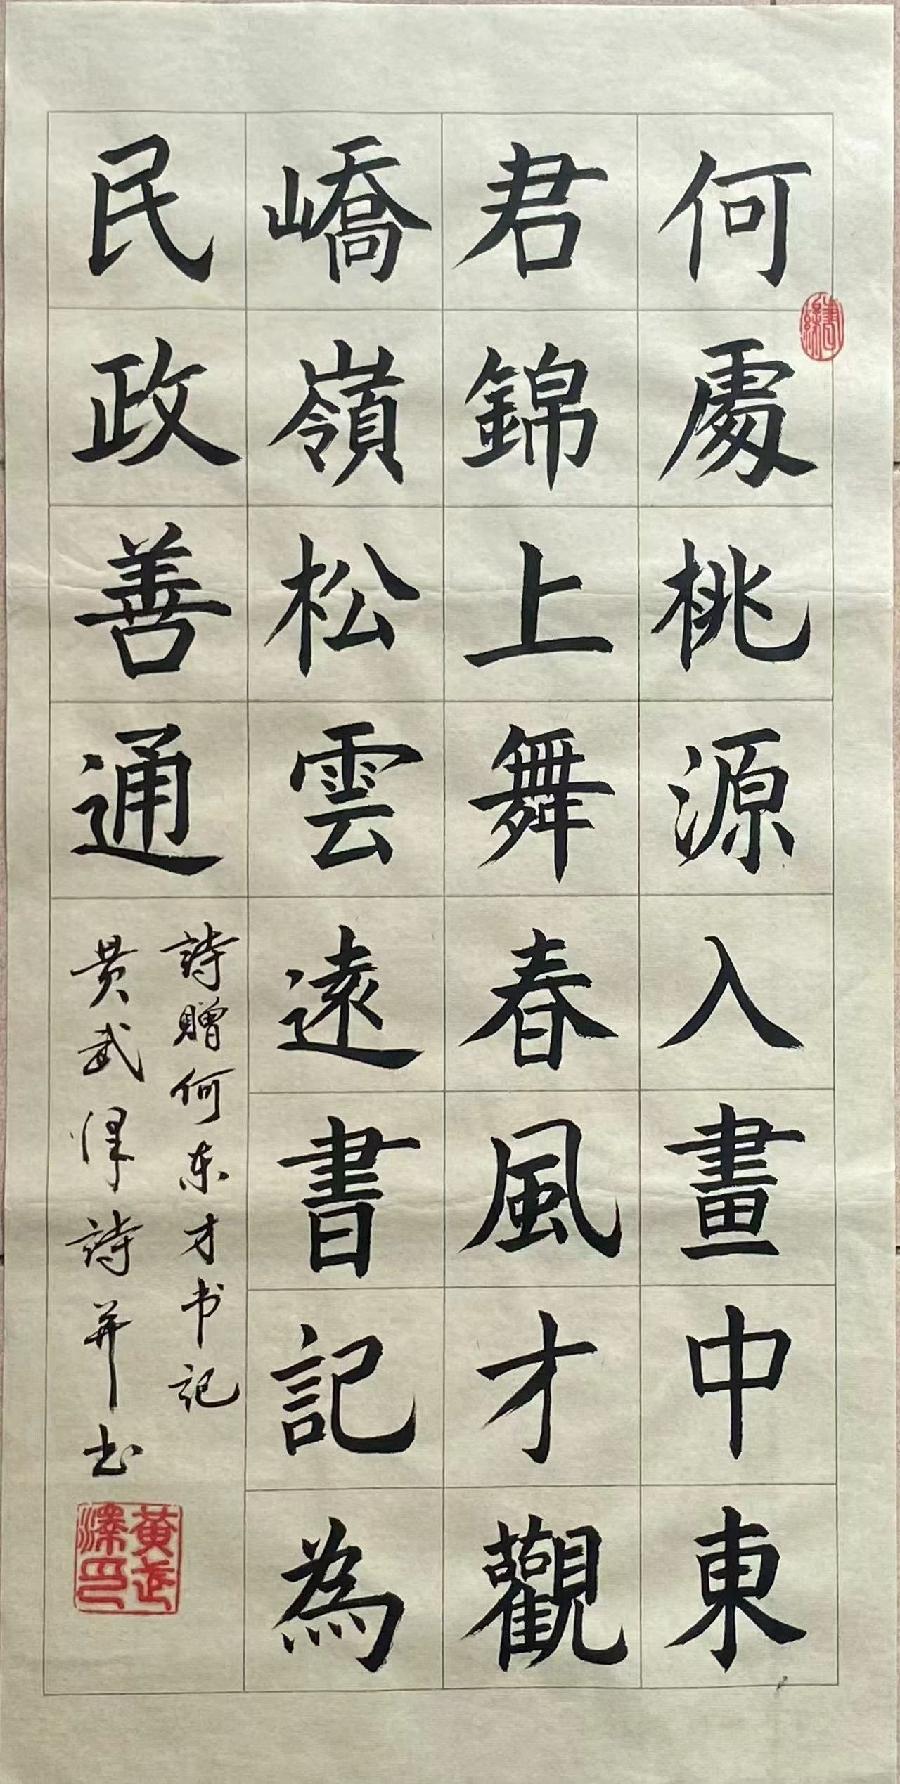 何處桃源入畫中東
君錦上舞春風才觀
嶠嶺松雲遠書記為
民政善通
詩贈何东才书记
黄武泽詩并书
黄武澤印